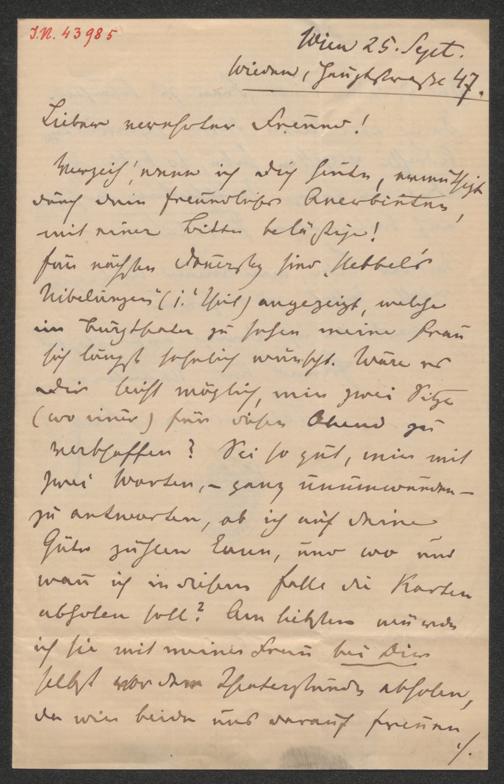 J.N. 43985
Wien 25. Sept.
Wieden, Hauptstrasse 47.
Lieber verehrter Freund!
Verzeih', wenn ich dich heute, ermuthigt
durch dein freundliches Anerbieten,
mit einer Bitte belästige!
Für nächsten Donnerstag sind „Hebbel's
Nibelungen" (I. Theil) angezeigt, welche
im Burgtheater zu sehen meine Frau
sich längst sehnlich wünscht. Wäre es
dir leicht möglich, mir zwei Sitze
(wo immer) für diesen Abend zu
verschaffen? Sei so gut, mir mit
zwei Worten, – ganz unumwunden –
zu antworten, ob ich auf deine
Güte zählen kann, und wo und
wann ich in diesem Falle die Karten
abholen soll? Am liebsten würde
ich sie mit meiner Frau bei Dir
selbst vor der Theaterstunde abholen,
da wir beide uns darauf freuen
./.